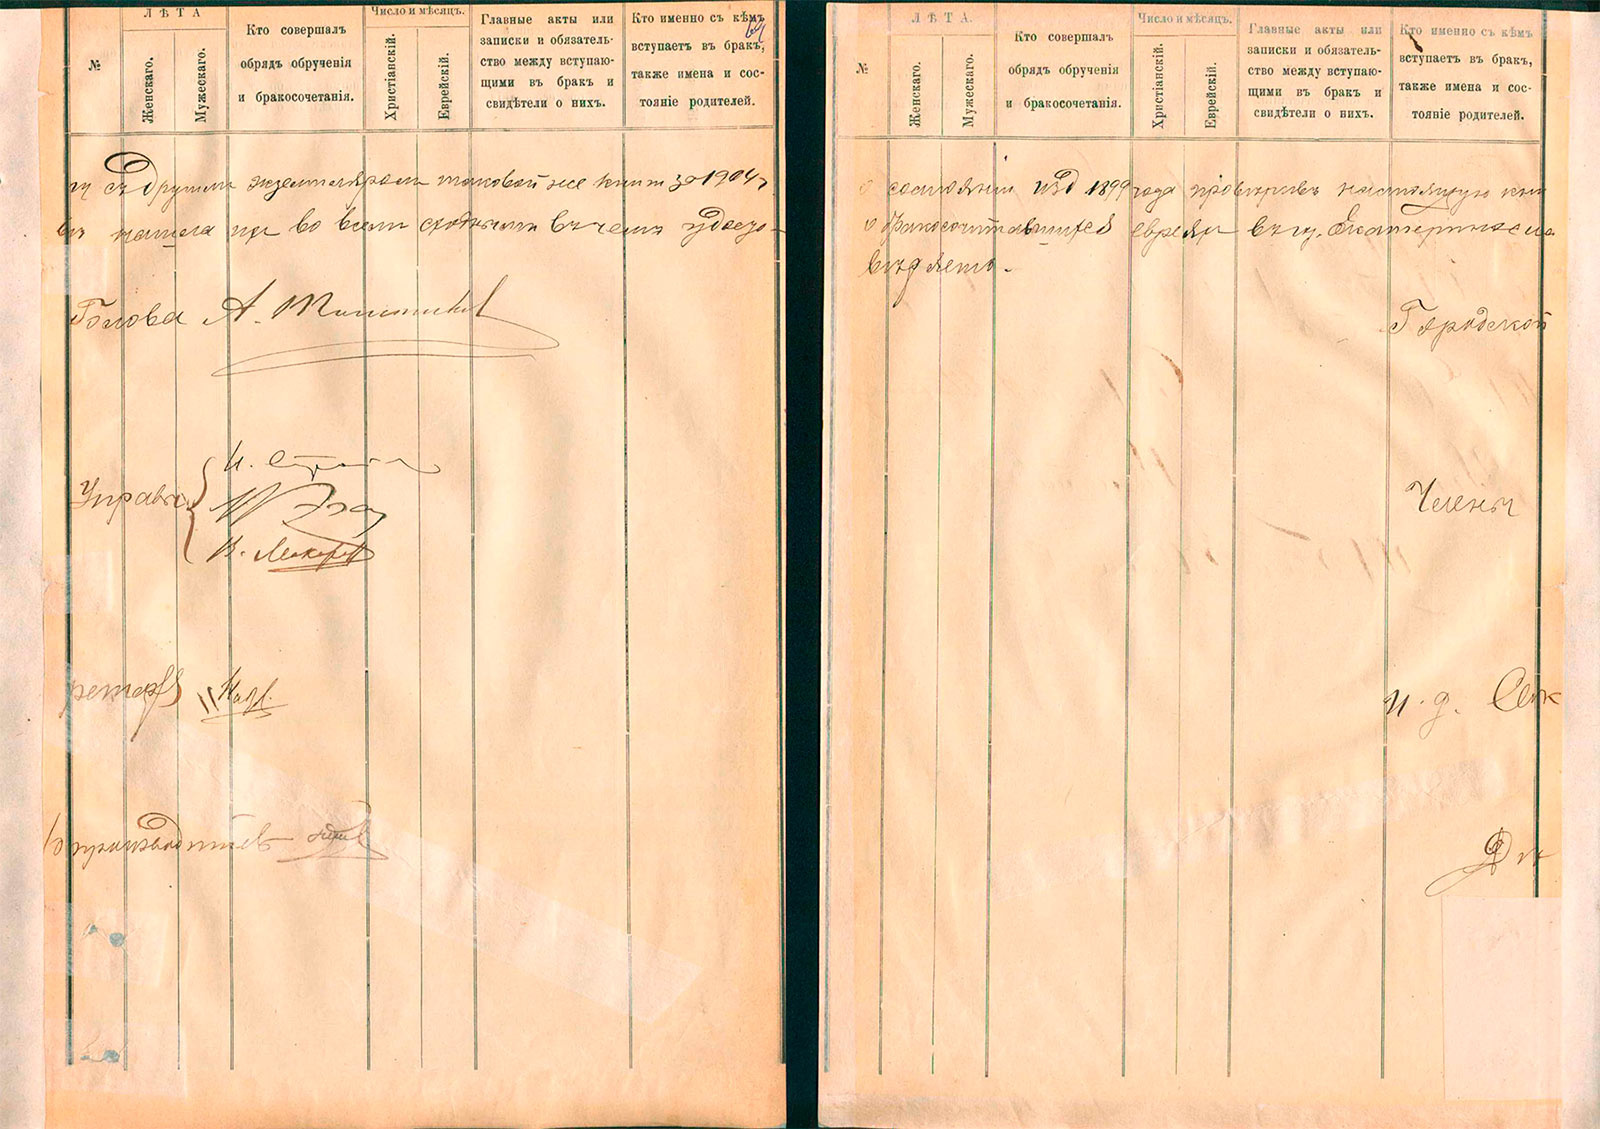 №
ЛѢТА
Женскаго.
Мужескаго.
Кто совершалъ
обрядъ обрученія
и бракосочетанія.
Число и мѣсяцъ.
Христіанскій.
Еврейскій.
Главные акты или
записки и обязатель-
ство между вступаю-
щими въ бракъ и
свидѣтели о нихъ.
Кто именно съ кѣмъ
вступаетъ въ бракъ,
также имена и сос-
тояніе родителей.
64
гу съ другимъ экземпляромъ таковой же книги за 1904 г.
въ нашла ихъ во всемъ сходными въ чемъ удосто-
Голова А.
Управы
И.
В.
ретарь
производитель
№
ЛѢТА.
Женскаго.
Мужескаго.
Кто совершалъ
обрядъ обрученія
и бракосочетанія.
Число и мѣсяцъ.
Христіанскій.
Еврейскій.
Главные акты или
записки и обязатель-
ство между вступаю-
щими въ бракъ и
свидѣтели о нихъ.
Кто именно съ кѣмъ
вступаетъ въ бракъ,
также имена и сос-
тояніе родителей.
о состояніи изд 1899 года провѣривъ настоящую кни
о бракосочитавшихся евреяхъ въ гу. Екатериносла
вѣряетъ.
Городской
Члены
и. д. Сек